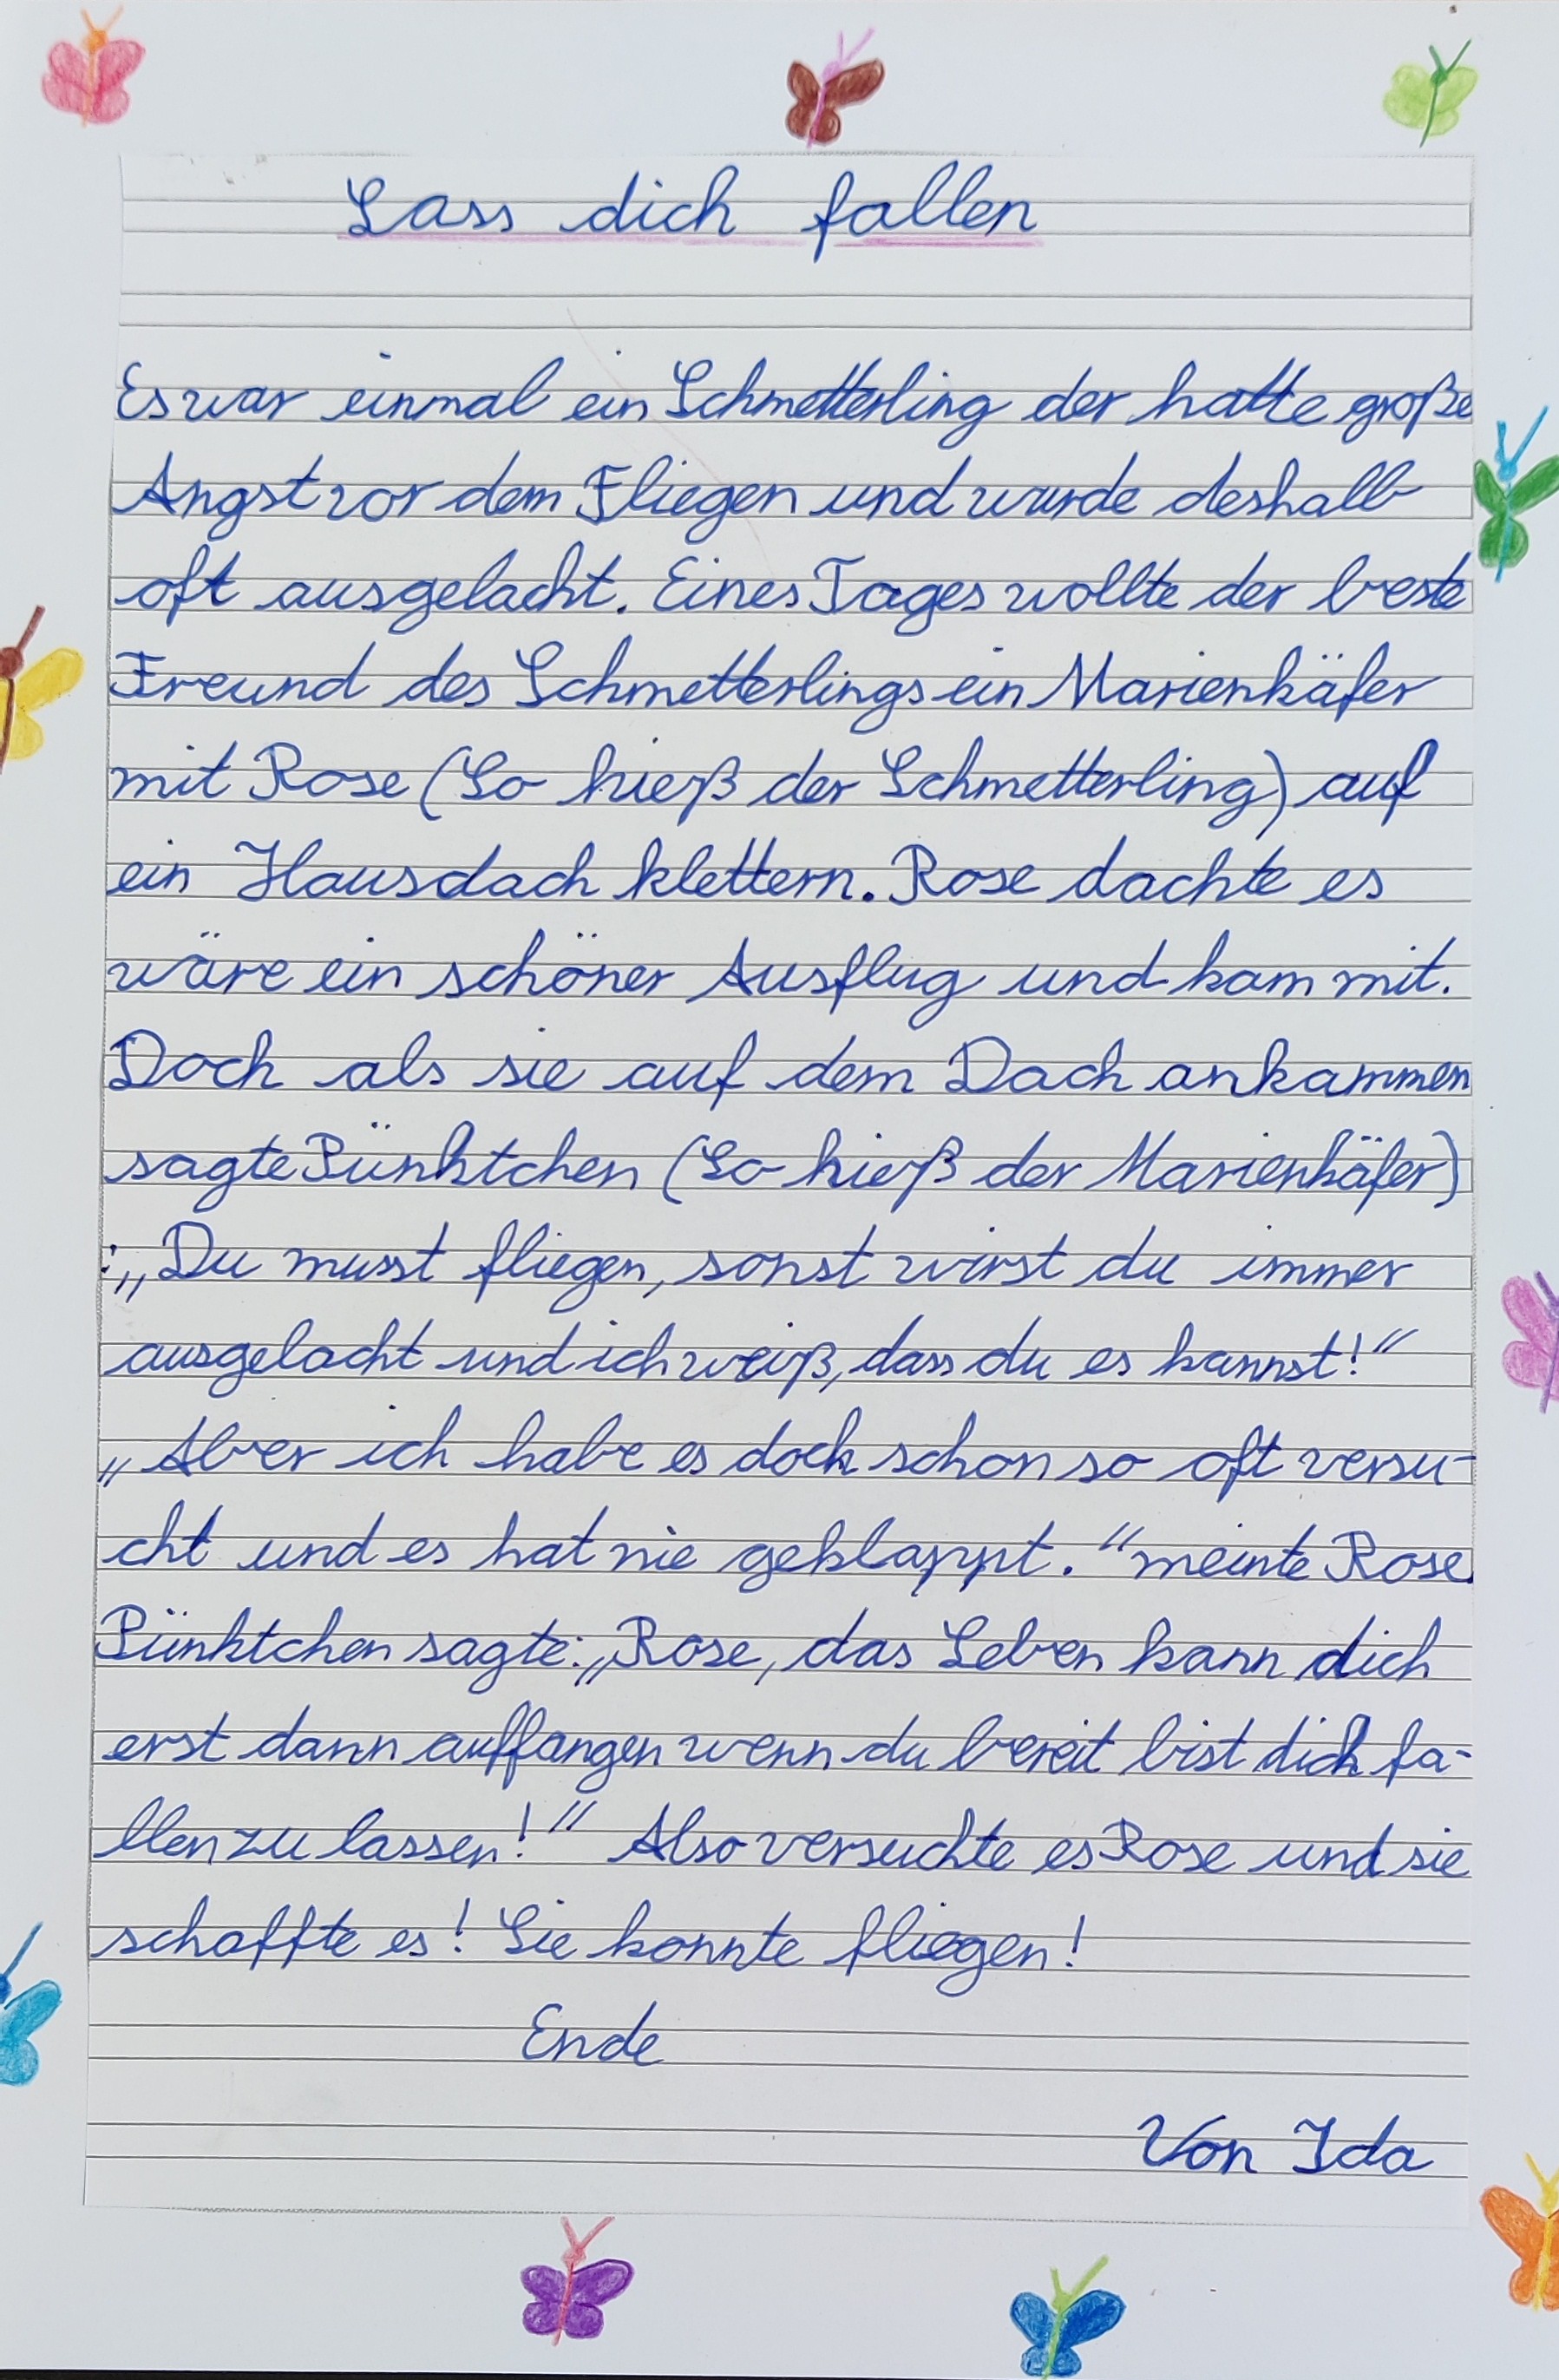 Lass dich fallen
Es war einmal ein Schmetterling der hatte große
Angst vor dem Fliegen und wurde deshalb
oft ausgelacht. Eines Tages wollte der beste
Freund des Schmetterlings ein Marienkäfer
mit Rose (So hieß der Schmetterling) auf
ein Hausdach klettern. Rose dachte es
wäre ein schöner Ausflug und kam mit.
Doch als sie auf dem Dach ankammen
sagte Pünktchen (So hieß der Marienkäfer)
:„Du musst fliegen, sonst wirst du immer
ausgelacht und ich weiß, dass du es kannst!“
„Aber ich habe es doch schon so oft versu-
cht und es hat nie geklappt.“ meinte Rose.
Pünktchen sagte:„Rose, das Leben kann dich
erst dann auffangen wenn du bereit bist dich fa-
llen zu lassen!“ Also versuchte es Rose und sie
schaffte es! Sie konnte fliegen!
Ende
Von Ida